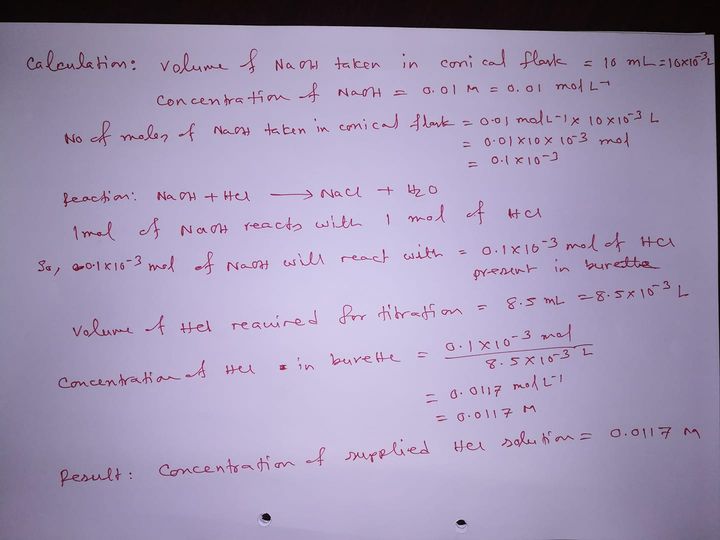 Calculation: Volume of NaOH taken in conical flask = 10 mL = 10×10⁻³ L
Concentration of NaOH = 0.01 M = 0.01 mol L⁻¹
No of moles of NaOH taken in conical flask = 0.01 mol L⁻¹ × 10 × 10⁻³ L
= 0.01×10× 10⁻³ mol
= 0.1×10⁻³
Reaction: NaOH + HCl ⟶ NaCl + H₂O
1 mol of NaOH reacts with 1 mol of HCl
So, 0.1×10⁻³ mol of NaOH will react with = 0.1×10⁻³ mol of HCl
present in burette
Volume of HCl required for titration = 8.5 mL = 8.5×10⁻³ L
Concentration of HCl in burette = 0.1×10⁻³ mol
8.5×10⁻³ L
= 0.0117 mol L⁻¹
= 0.0117 M
Result: Concentration of supplied HCl solution = 0.0117 M